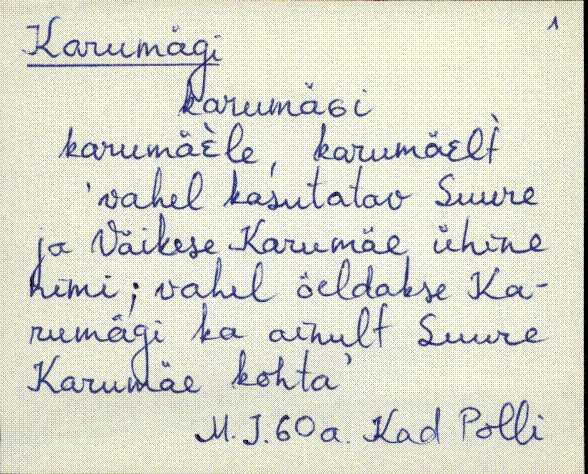 1
Karumägi
karumäGi
karumäè̀le, karumäel̀t
'vahel kasutatav Suure
ja Väikese Karumäe ühine
nimi; vahel öeldakse Ka-
rumägi ka ainult Suure
Karumäe kohta'
M.J. 60 a. Kad Polli